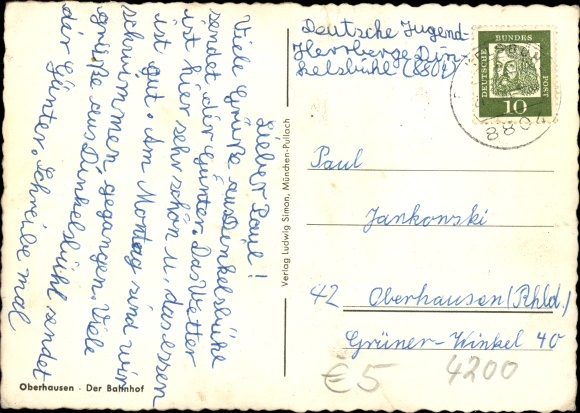 Deutsche Jugend-
Herrberge Din-
kelsbühl (8804)
Lieber Paul!
Viele Grüße aus Dinkelsbühl
sendet dir Günter. Das Wetter
ist hier sehr schön u. das essen
ist gut. Am Montag sind wir
schwimmen gegangen. Viele
grüße aus Dinkelsbühl sendet
dir Günter. Schreibe mal
Verlag Ludwig Simon, München-Pullach
DEUTSCHE BUNDES POST
10
8804
Paul
Jankowski
42 Oberhausen (Rhld.)
Grüner-Winkel 40
€5 4200
Oberhausen - Der Bahnhof